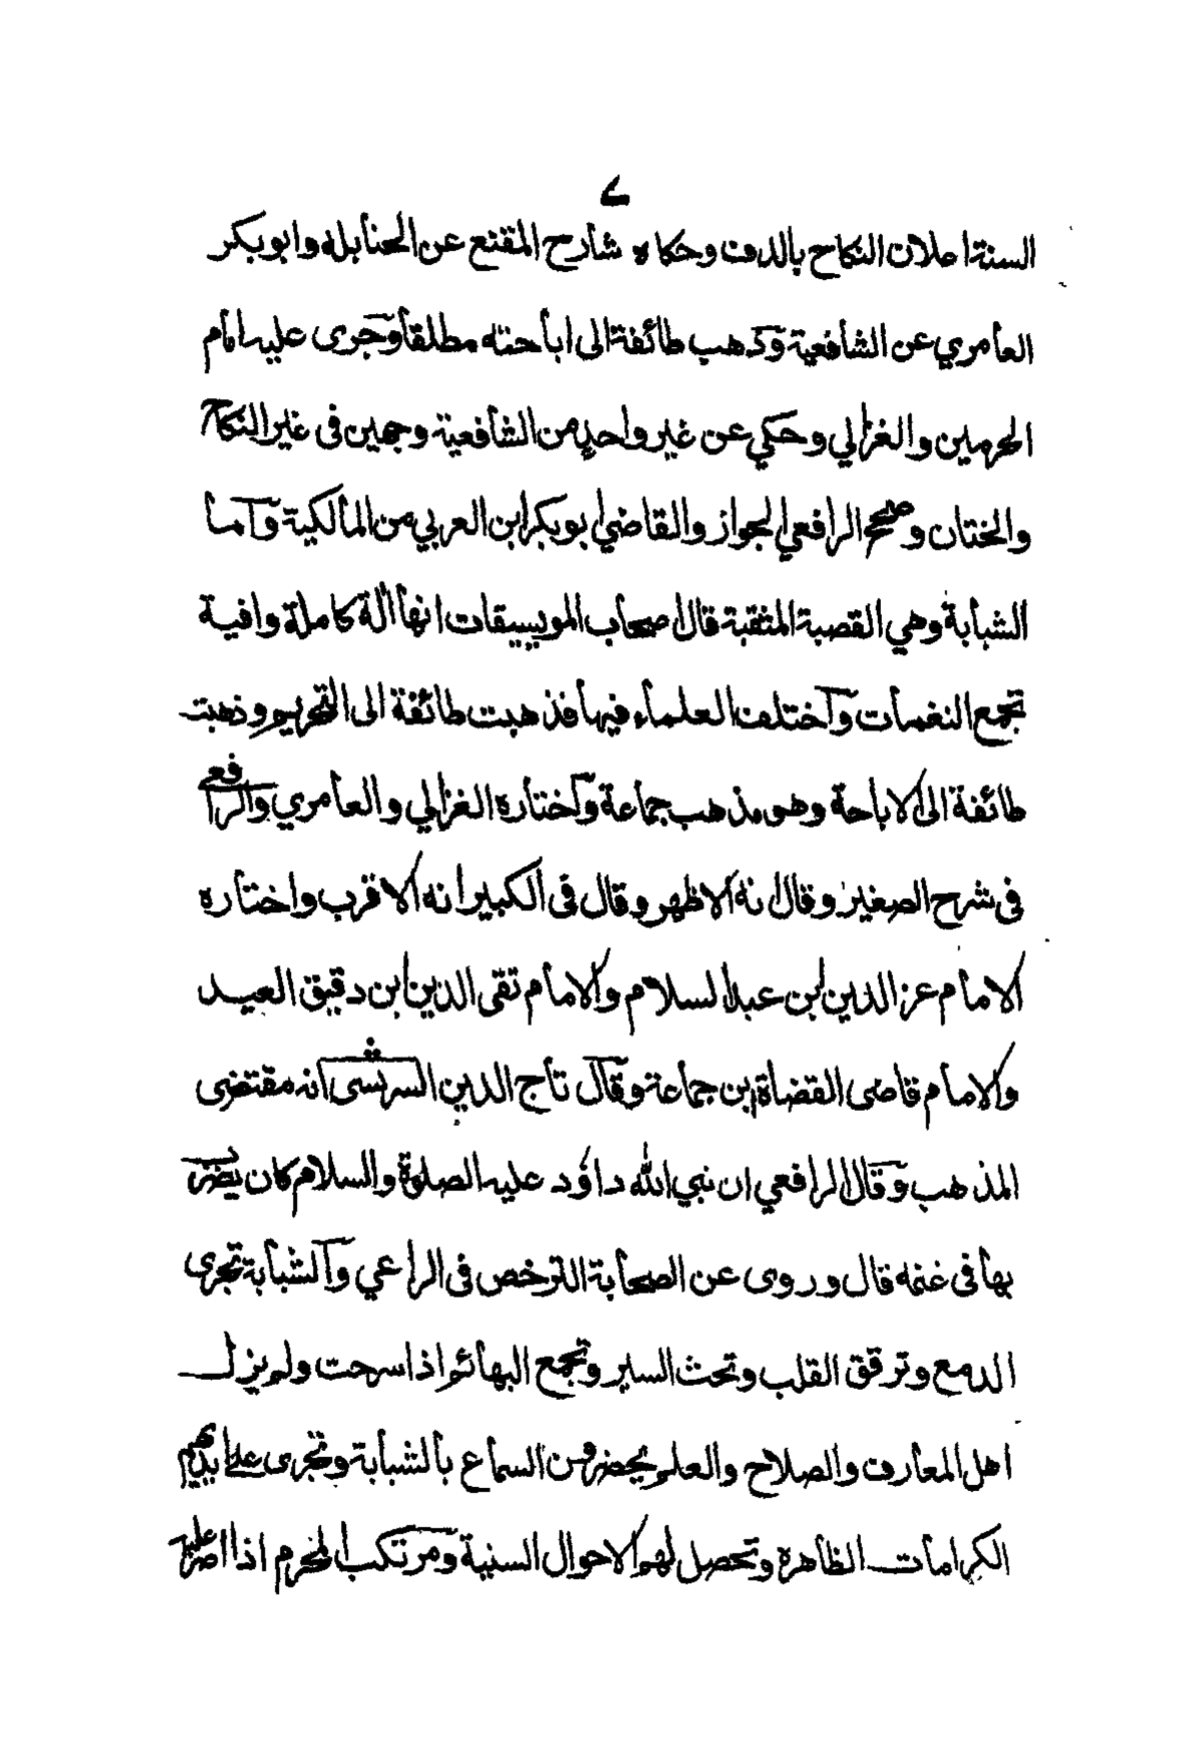 ٧
السنة اعلان النكاح بالدف وحكاه شارح المقنع عن الحنابله وابو بكر
العامري عن الشافعية وذهب طائفة الى اباحته مطلقا وجرى عليه امام
الحرمين والغزالي وحكي عن غير واحد من الشافعية وجهين فى غير النكاح
والختان وصحح الرافعي الجواز والقاضي ابو بكر ابن العربي من المالكية واما
الشبابة وهي القصبة المثقبة قال اصحاب الموسيقات انها آلة كاملة وافية
تجمع النغمات واختلف العلماء فيها فذهبت طائفة الى التحريم وذهبت
طائفة الى الاباحة وهو مذهب جماعة واختاره الغزالي والعامري والرافعي
فى شرح الصغير وقال انه الاظهر وقال فى الكبير انه الاقرب واختاره
الامام عز الدين ابن عبد السلام والامام تقى الدين ابن دقيق العيد
والامام قاضى القضاة ابن جماعة وقال تاج الدين الشريشى انه مقتضى
المذهب وقال الرافعي ان نبي الله داؤد عليه الصلوة والسلام كان يضرب
بها فى غنمه قال وروى عن الصحابة الترخص فى الراعي والشبابة تجرى
الدمع وترقق القلب وتحث السير وتجمع البهائم اذا سرحت ولم يزل
اهل المعارف والصلاح والعلم يحضرون السماع بالشبابة وتجرى على ايديهم
الكرامات الظاهرة وتحصل لهم الاحوال السنية ومرتكب المحرم اذا اصر عليه